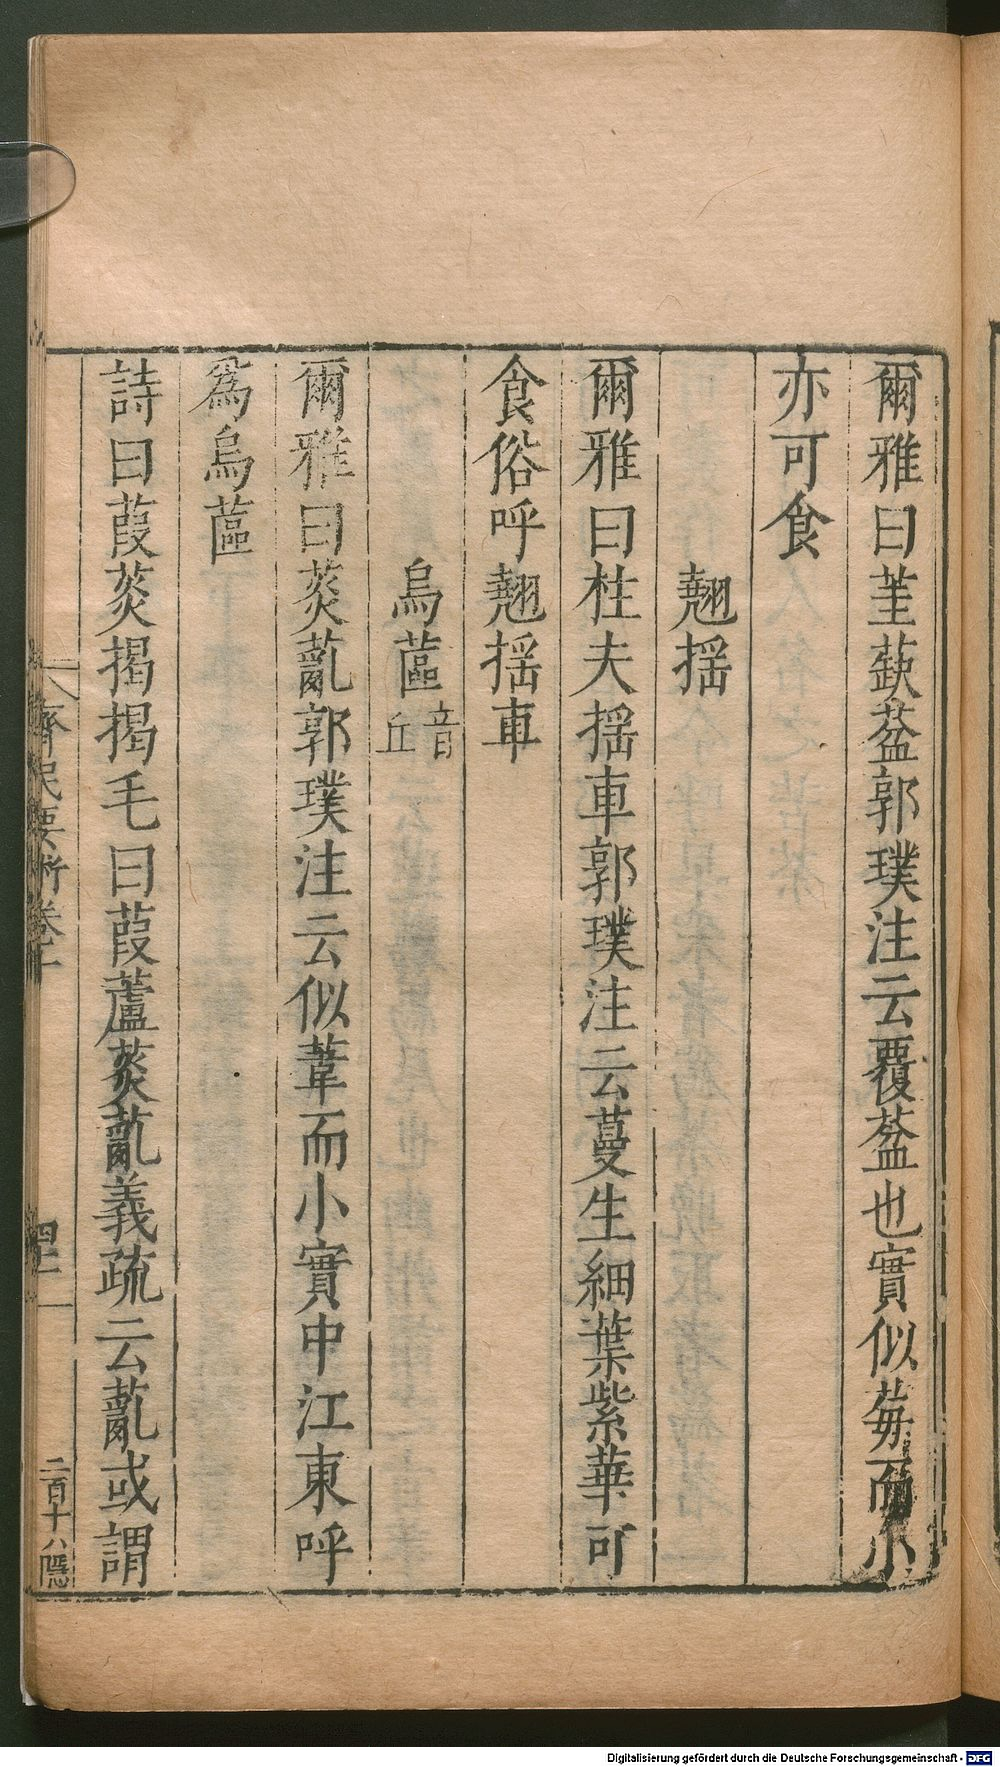 爾雅曰茥蒛葐郭璞注云覆葐也實似莓而小
亦可食
翹揺
爾雅曰柱夫揺車郭璞注云蔓生細葉紫華可
食俗呼翹揺車
烏蓲音丘
爾雅曰菼薍郭璞注云似葦而小實中江東呼
為烏蓲
詩曰葭菼揭揭毛曰葭蘆菼薍義疏云薍或謂
齊民要術卷十
二百十八隱
Digitalisierung gefördert durch die Deutsche Forschungsgemeinschaft - DFG